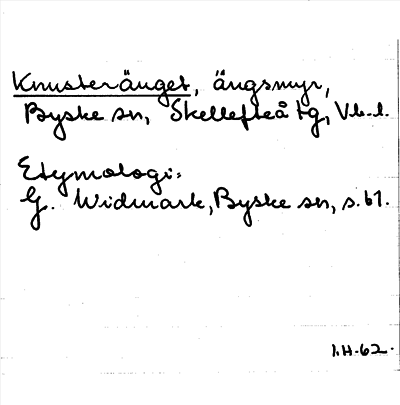 Knusteränget, ängsmyr,
Byske sn, Skellefteå tg, Vb. l.
Etymologi:
G. Widmark, Byske sn, s. 61.
I.H-62.